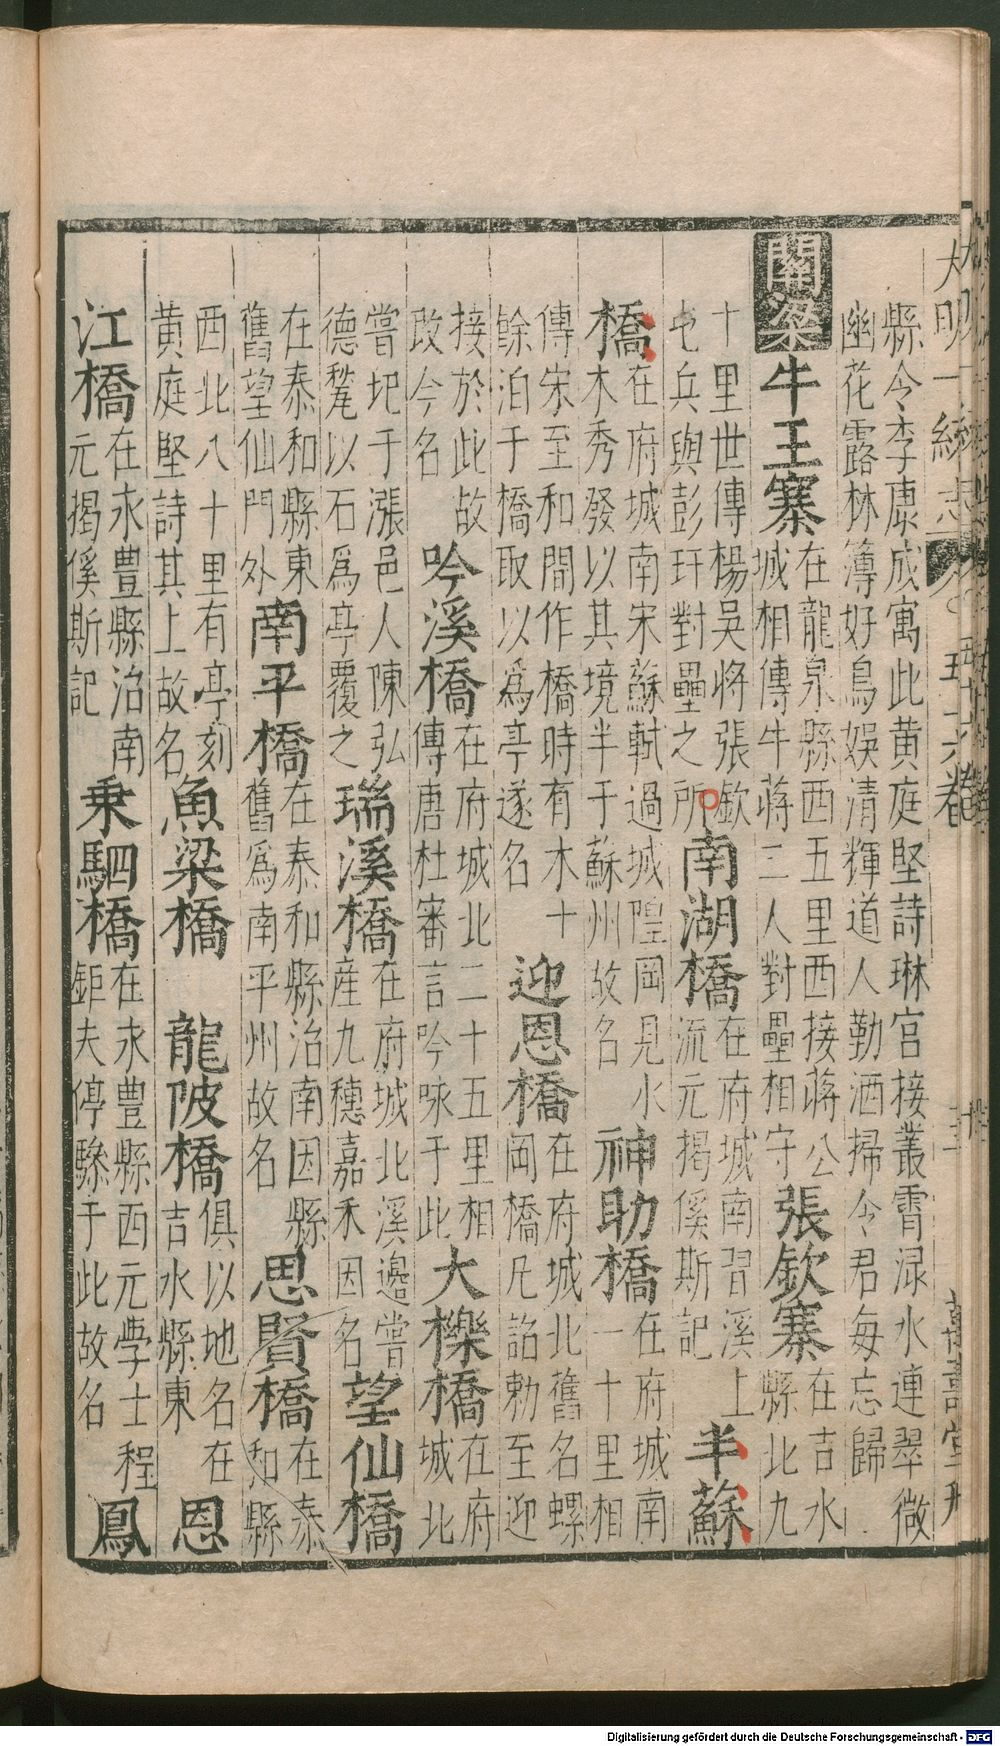 大明一統志 五十六卷 三十 萬壽堂刊
縣令李康成寓此黃庭堅詩琳宮接叢霄淥水連翠微
幽花露林薄好鳥娛清輝道人勤洒掃令君每忘歸
關梁 牛王寨 在龍泉縣西五里西接蔣公城相傳牛蔣二人對壘相守 張欽寨 在吉水縣北九
十里世傳楊吳將張欽屯兵與彭玕對壘之所 南湖橋 在府城南習溪上流元揭傒斯記 半蘇
橋 在府城南宋蘇軾過城隍岡見水木秀發以其境半于蘇州故名 神助橋 在府城南一十里相
傳宋至和間作橋時有木十餘泊于橋取以爲亭遂名 迎恩橋 在府城北舊名螺岡橋凡詔勅至迎
接於此故改今名 吟溪橋 在府城北二十五里相傳唐杜審言吟咏于此 大櫟橋 在府城北
嘗圯于漲邑人陳弘德甃以石爲亭覆之 瑞溪橋 在府城北溪邊嘗產九穗嘉禾因名 望仙橋
在泰和縣東舊望仙門外 南平橋 在泰和縣治南因縣舊爲南平州故名 思賢橋 在泰和縣
西北八十里有亭刻黃庭堅詩其上故名 魚梁橋 龍陂橋 俱以地名在吉水縣東 恩
江橋 在永豐縣治南元揭傒斯記 乘駟橋 在永豐縣西元學士程鉅夫停驂于此故名 鳳
Digitalisierung gefördert durch die Deutsche Forschungsgemeinschaft - DFG